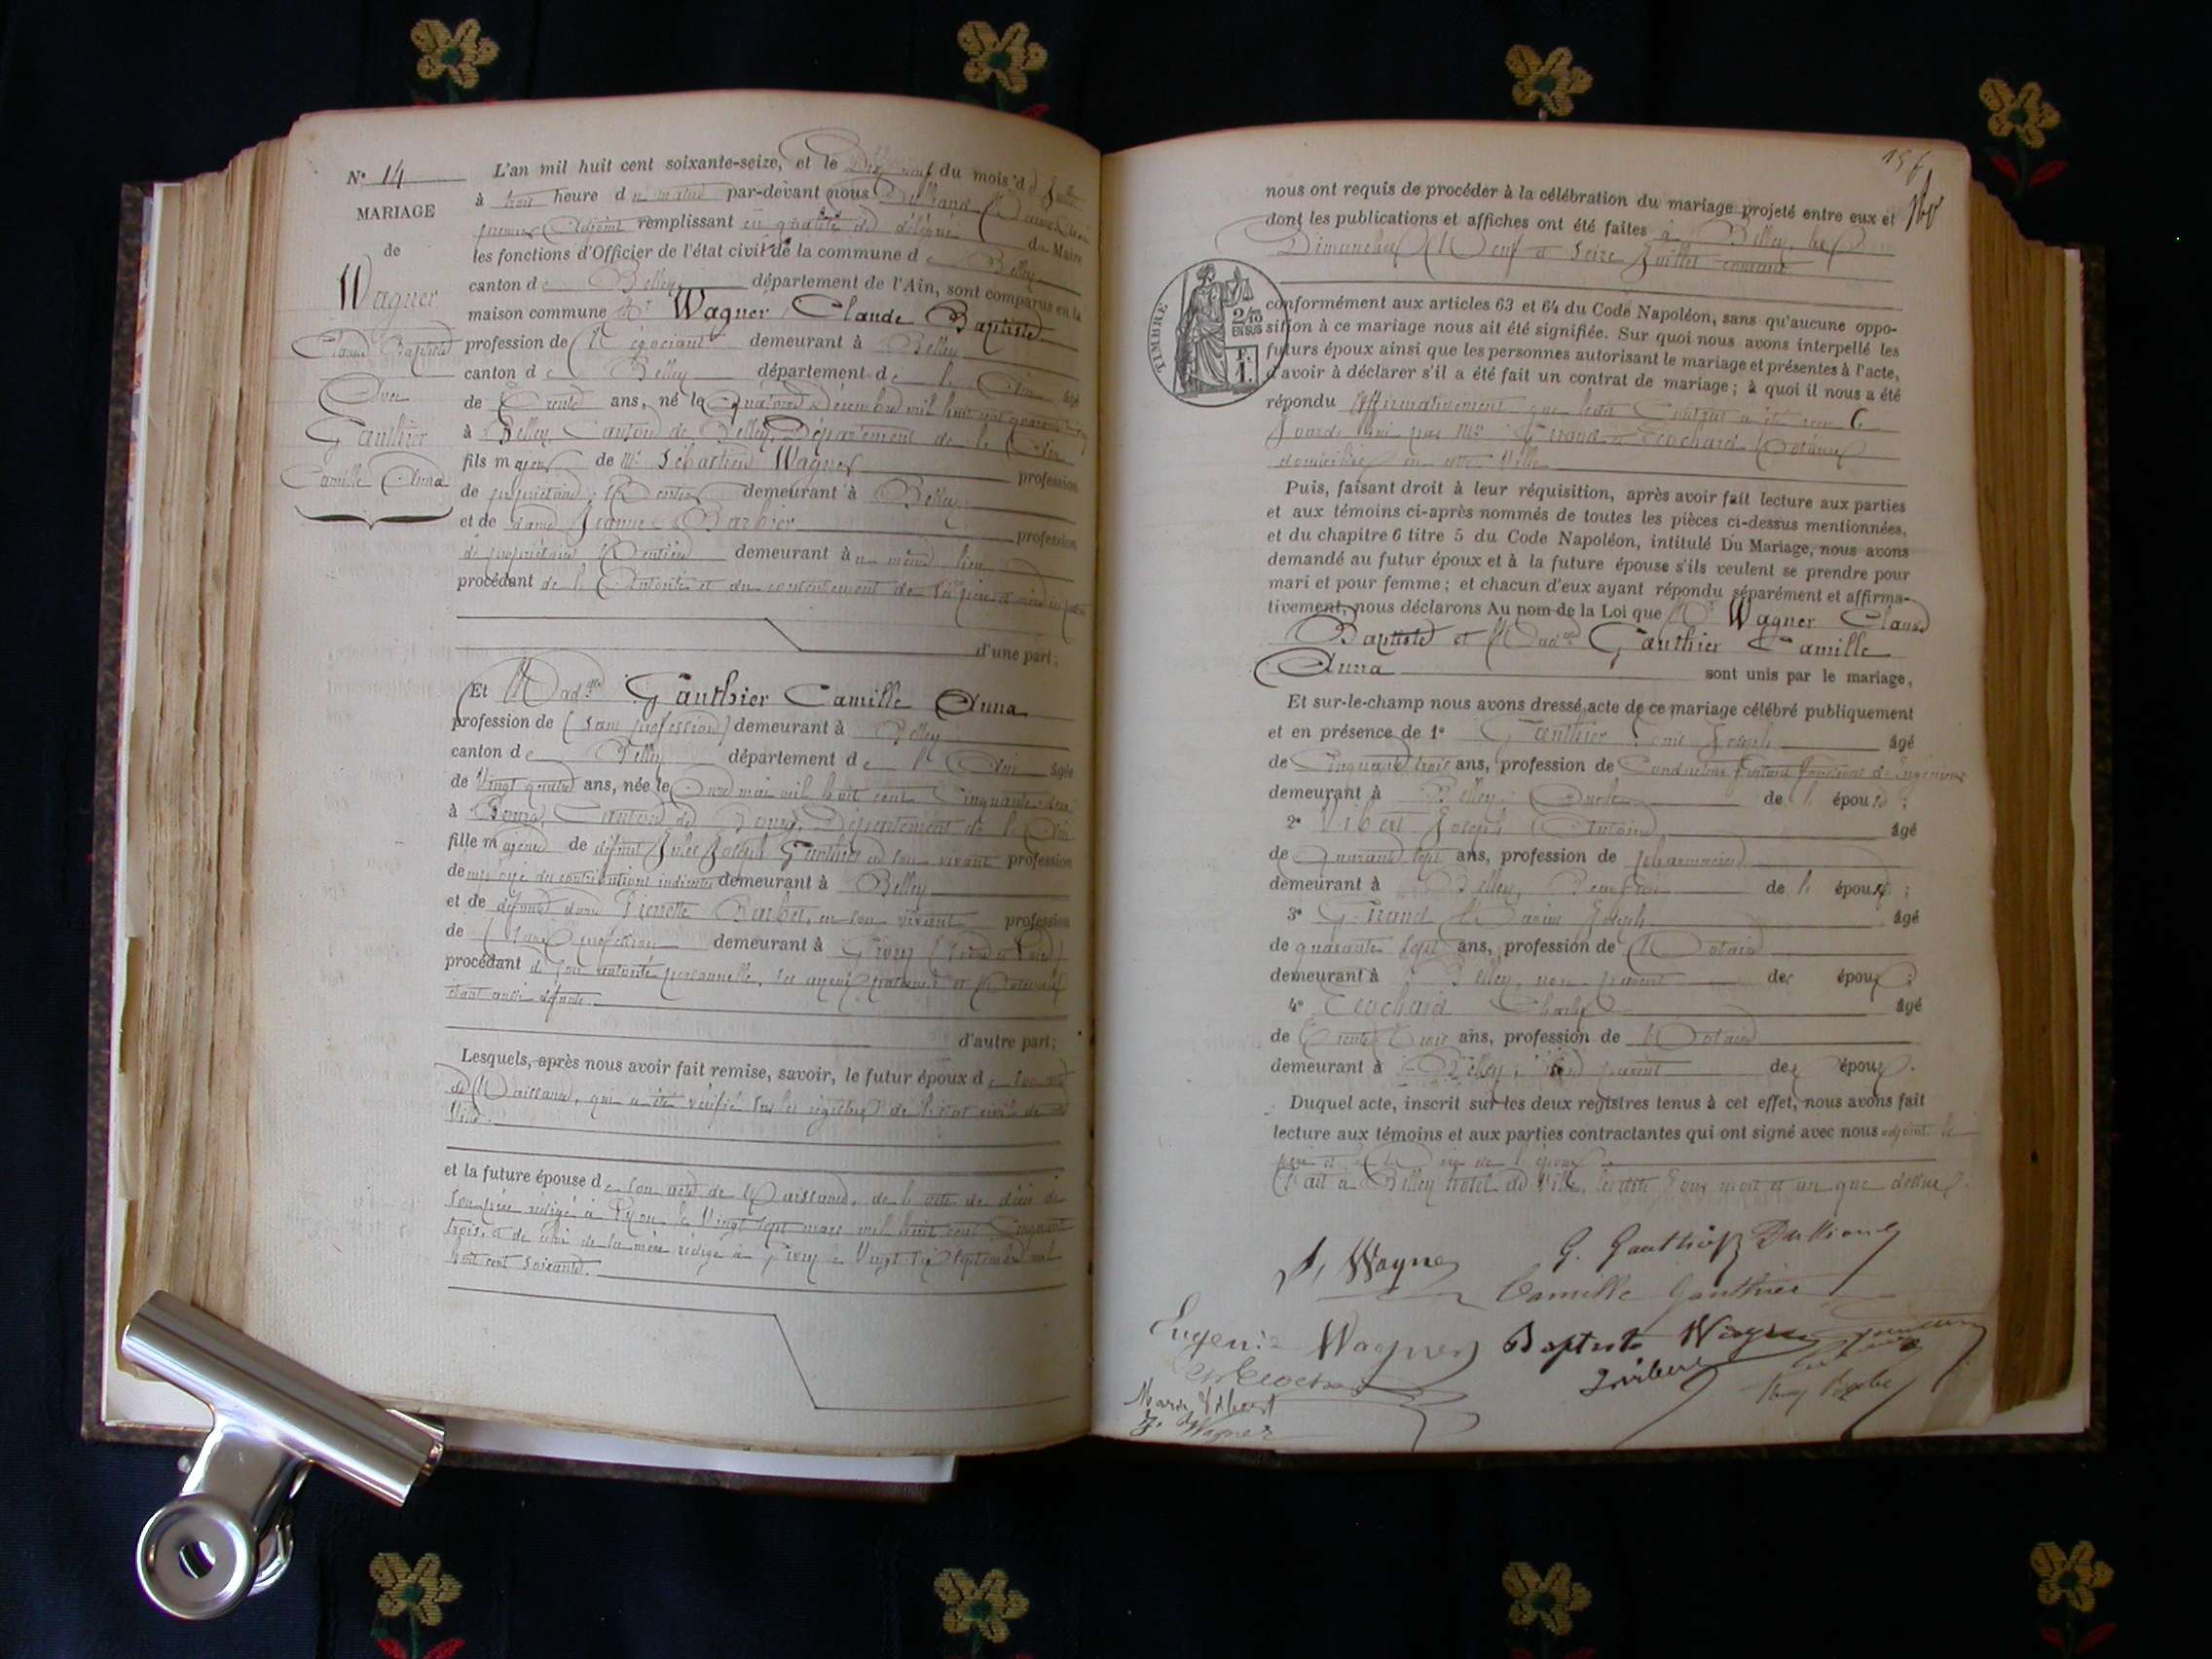 N° 14
MARIAGE
de
Wagner
Claude Baptiste
Avec
Gauthier
Camille Anna
L'an mil huit cent soixante-seize, et le Dix neuf du mois d Juillet
à huit heure du matin par-devant nous
premier Adjoint remplissant en qualité de délégué du Maire
les fonctions d'Officier de l'état civil de la commune de Belley
canton de Belley département de l'Ain, sont comparus en la
maison commune Mr Wagner Claude Baptiste
profession de Négociant demeurant à Belley
canton de Belley département de l'Ain âgé
de Trente ans, né le Quatorze Décembre mil huit cent quarante
à Belley, Canton de Belley, Département de l'Ain
fils majeur de Mr Sébastien Wagner profession
de propriétaire Rentier demeurant à Belley
et de dame Jeanne Barbier profession
de propriétaire Rentière demeurant au même lieu
procédant de l'Autorité et du consentement de ses père et mère
d'une part;
Et Madlle Gauthier Camille Anna
profession de (sans profession) demeurant à Belley
canton de Belley département de l'Ain âgée
de Vingt quatre ans, née le Onze mai mil huit cent Cinquante deux
à Bourg, Canton de Bourg, Département de l'Ain
fille majeure de défunt Jules Joseph Gauthier en son vivant profession
de employé des contributions indirectes demeurant à Belley
et de défunte dame Pierrette Barbet, en son vivant profession
de (sans profession demeurant à Givry (Saône et Loire)
procédant de son autorité personnelle, ses ayeux paternels et Maternels
étant aussi défunts.
d'autre part;
Lesquels, après nous avoir fait remise, savoir, le futur époux de son acte
de Naissance, qui a été vérifié sur les registres de l'état civil de cette
Ville.
et la future épouse de son acte de Naissance, de l'acte de décès de
son père rédigé à Lyon le Vingt sept mars mil huit cent Cinquante
trois, et de celui de sa mère rédigé à Givry le Vingt Septembre mil
huit cent soixante.
nous ont requis de procéder à la célébration du mariage projeté entre eux et
dont les publications et affiches ont été faites à Belley, les
Dimanches Neuf et Seize Juillet courant
TIMBRE
2/10
EN SUS
F.
1.
conformément aux articles 63 et 64 du Code Napoléon, sans qu'aucune oppo-
sition à ce mariage nous ait été signifiée. Sur quoi nous avons interpellé les
futurs époux ainsi que les personnes autorisant le mariage et présentes à l'acte,
d'avoir à déclarer s'il a été fait un contrat de mariage; à quoi il nous a été
répondu Affirmativement que ledit Contrat a été reçu Ce
Jourd'hui par Mrs Girand et Teochard Notaires
domiciliés en cette Ville
Puis, faisant droit à leur réquisition, après avoir fait lecture aux parties
et aux témoins ci-après nommés de toutes les pièces ci-dessus mentionnées,
et du chapitre 6 titre 5 du Code Napoléon, intitulé Du Mariage, nous avons
demandé au futur époux et à la future épouse s'ils veulent se prendre pour
mari et pour femme; et chacun d'eux ayant répondu séparément et affirma-
tivement, nous déclarons Au nom de la Loi que Mr Wagner Claude
Baptiste et Madlle Gauthier Camille
Anna sont unis par le mariage,
Et sur-le-champ nous avons dressé acte de ce mariage célébré publiquement
et en présence de 1° Gauthier Joseph âgé
de Cinquante trois ans, profession de Conducteur faisant fonctions de Ingénieur
demeurant à Belley, Oncle de l'épouse;
2° Vibert Joseph Antoine, âgé
de Quarante sept ans, profession de pharmacien
demeurant à Belley, Beau frère de l'époux;
3° Girand Marin Joseph âgé
de quarante sept ans, profession de Notaire
demeurant à Belley, non parent des époux;
4° Teochard Charles âgé
de Trente Trois ans, profession de Notaire
demeurant à Belley, non parent des époux.
Duquel acte, inscrit sur les deux registres tenus à cet effet, nous avons fait
lecture aux témoins et aux parties contractantes qui ont signé avec nous adjoint le
père et la Mère de l'époux
Fait à Belley hotel de Ville, lesdits Jour mois et an que dessus.
S. Wagner G. Gauthier
Camille Gauthier
Eugenie Wagner Baptiste Wagner
J. Vibert
Marie Vibert
J. Wagner